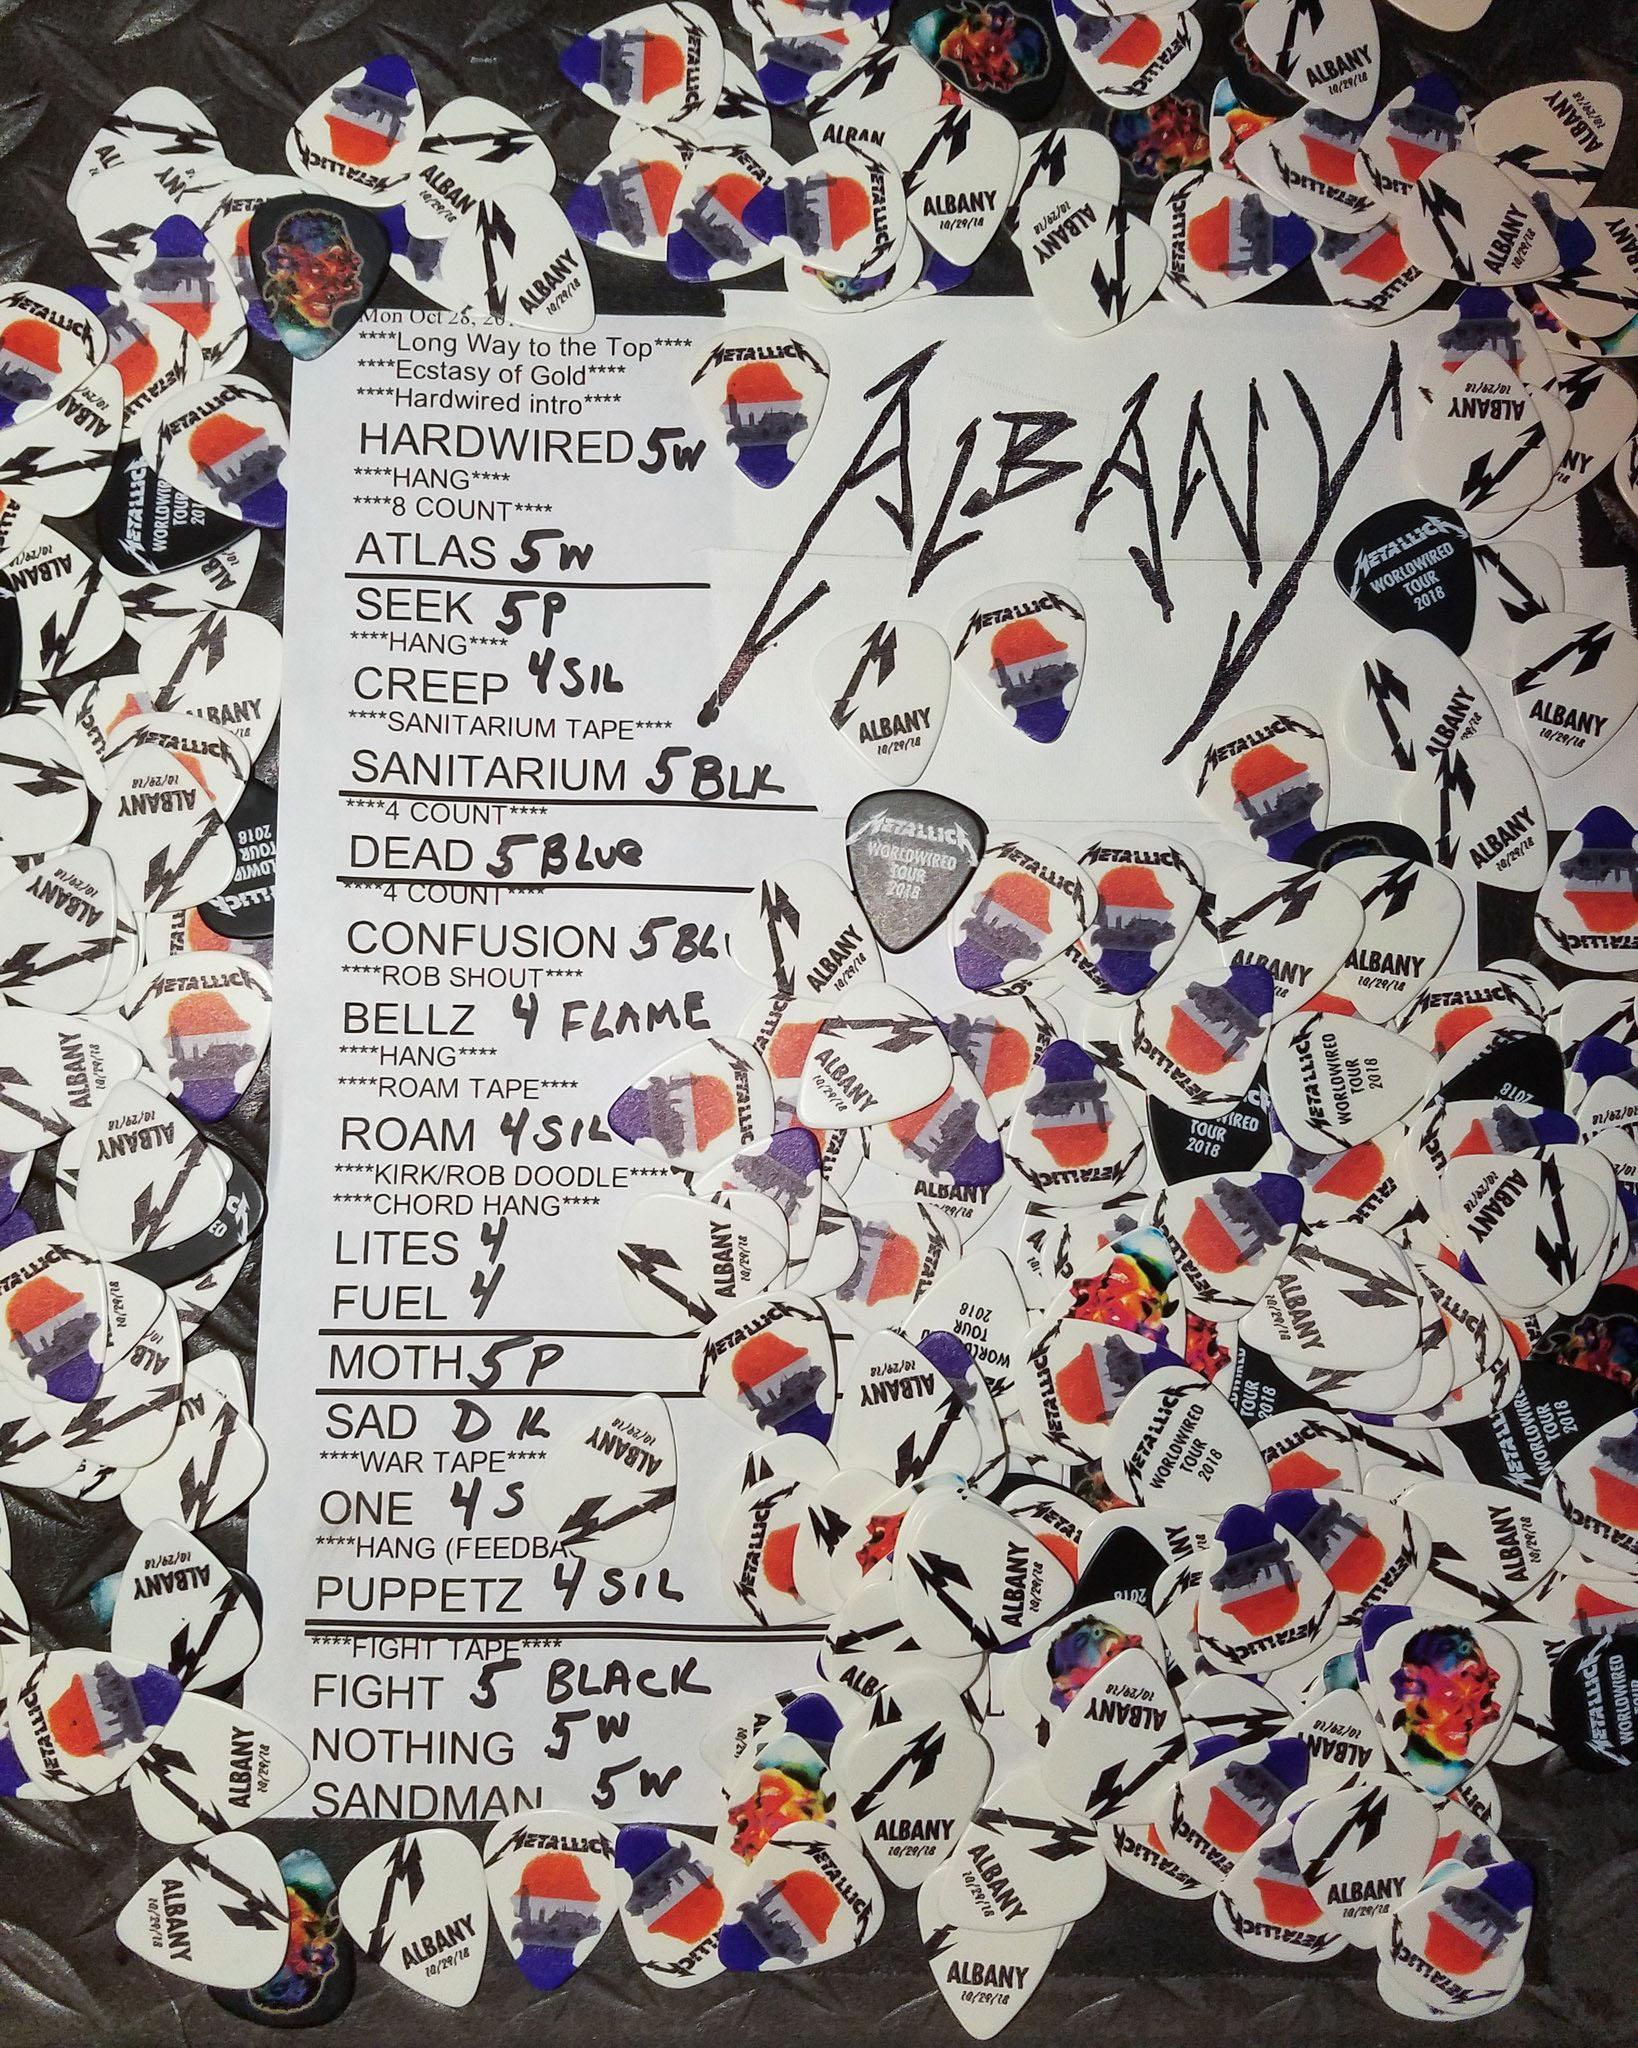 Mon Oct 28,
****Long Way to the Top****
****Ecstasy of Gold****
****Hardwired intro****
HARDWIRED 5W
****HANG****
****8 COUNT****
ATLAS 5W
SEEK 5P
****HANG****
CREEP 4 SIL
****SANITARIUM TAPE****
SANITARIUM 5 BLK
****4 COUNT****
DEAD 5 BLUE
****4 COUNT****
CONFUSION 5
****ROB SHOUT****
BELLZ 4 FLAME
****HANG****
****ROAM TAPE****
ROAM 4 SIL
****KIRK/ROB DOODLE****
****CHORD HANG****
LITES 4
FUEL 4
MOTH 5P
SAD D
****WAR TAPE****
ONE 4 S
****HANG
PUPPETZ 4 SIL
****FIGHT TAPE****
FIGHT 5 BLACK
NOTHING 5W
SANDMAN 5W
ALBANY
METALLICA
ALBANY
10/29/18
METALLICA
WORLDWIRED
TOUR
2018